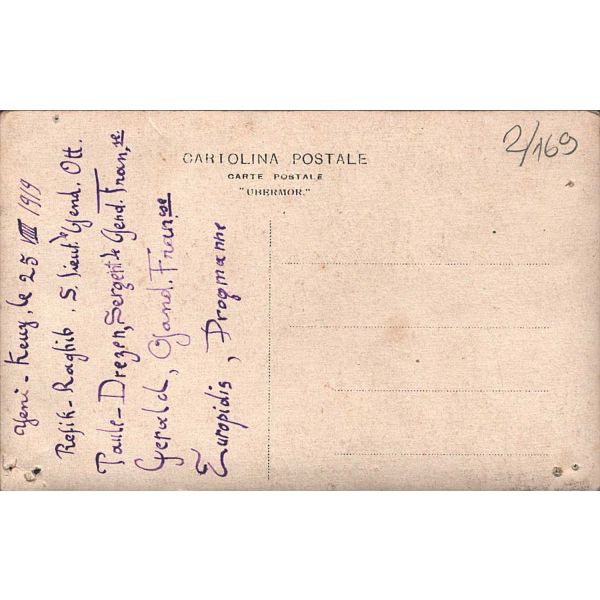 CARTOLINA POSTALE
CARTE POSTALE
"UBERMOR."
2/169
Yeni-Keuy, le 25 VIII 1919
Refik-Raghib. S. lieut. de Gend. Ott.
Taule-Drezen, Sergent de Gend. Fran.se
Gerald, Gand. Fran.se
Euripidis, Drogmanne